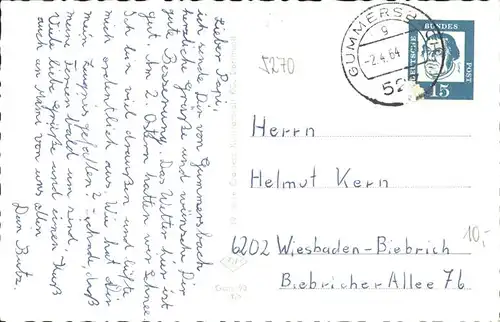 Lieber Papi,
ich sende Dir von Gummersbach
herzliche Grüße und wünsche Dir
gute Besserung. Das Wetter hier ist
gut. Am 2. Ostern hatten wir Schnee
Ich bin viel draußen und lüfte
mich ordentlich aus. Wie hat Dir
mein Zeugnis gefallen? Schade, daß
meine Ferien bald um sind.
Viele liebe Grüße und einen Kuß
auch an von uns allen
Dein
5270
GUMMERSBACH
g
-2.4.64
52
DEUTSCHE BUNDESPOST
15
Herrn
Helmut Kern
6202 Wiesbaden-Biebrich
Biebricher Allee 76
10,-